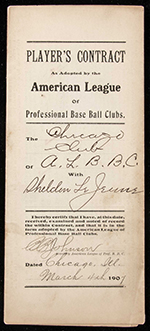 PLAYER'S CONTRACT
As Adopted by the
American League
Of
Professional Base Ball Clubs.
The Chicago
Club
Of A. L. B. B. C.
With
Sheldon Le Jeune
I hereby certify that I have, at this date, received, examined and noted of record the within Contract, and that it is in the form adopted by the American League of Professional Base Ball Clubs.
B B Johnson
Dated Chicago, Ill.
March 4th 1907